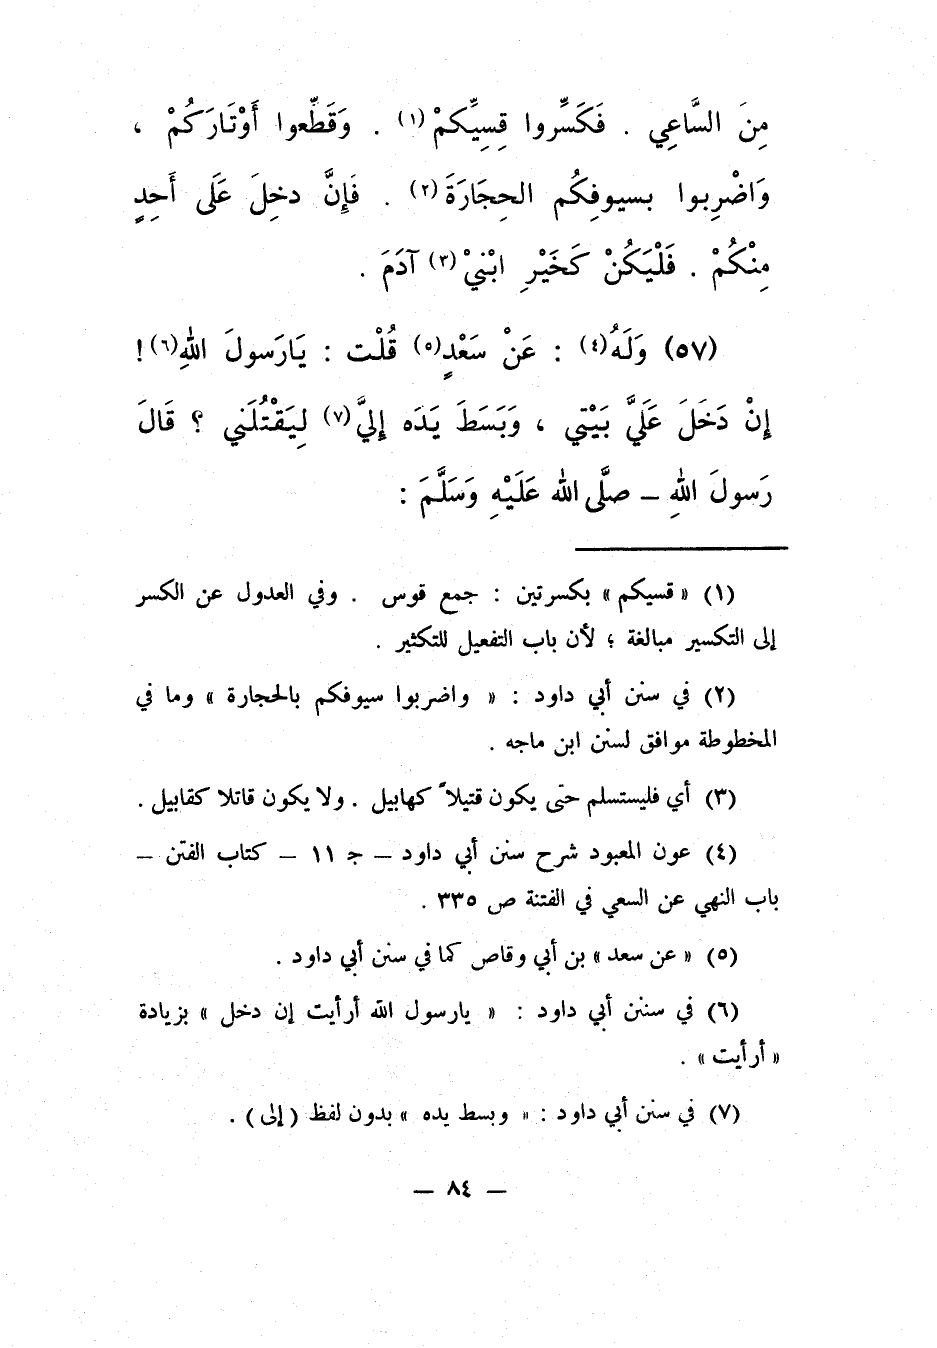 مِنَ السَّاعِي . فَكَسِّروا قِسِيِّكمْ (١) . وَقَطِّعوا أَوْتَارَكُمْ ،
وَاضْرِبوا بسيوفِكُم الحِجَارَةَ (٢) . فَإِنَّ دخِلَ عَلَى أَحِدٍ
مِنْكُمْ . فَلْيَكُنْ كَخَيْرِ ابْنيْ (٣) آدَمَ .
(٥٧) وَلَهُ (٤) : عَنْ سَعْدٍ (٥) قُلْت : يَارَسولَ اللهِ (٦) !
إنْ دَخَلَ عَلَيَّ بَيْتي ، وَبَسَطَ يَدَه إليَّ (٧) لِيَقْتُلَني ؟ قَالَ
رَسولَ اللهِ — صلَّى الله عَلَيْهِ وَسَلَّمَ :
(١) « قسيكم » بكسرتين : جمع قوس . وفي العدول عن الكسر
إلى التكسير مبالغة ؛ لأن باب التفعيل للتكثير .
(٢) في سنن أبي داود : « واضربوا سيوفكم بالحجارة » وما في
المخطوطة موافق لسنن ابن ماجه .
(٣) أي فليستسلم حتى يكون قتيلاً كهابيل . ولا يكون قاتلا كقابيل .
(٤) عون المعبود شرح سنن أبي داود — جـ ١١ — كتاب الفتن —
باب النهي عن السعي في الفتنة ص ٣٣٥ .
(٥) « عن سعد » بن أبي وقاص كما في سنن أبي داود .
(٦) في سنن أبي داود : « يارسول الله أرأيت إن دخل » بزيادة
« أرأيت » .
(٧) في سنن أبي داود : « وبسط يده » بدون لفظ ( إلى ) .
— ٨٤ —